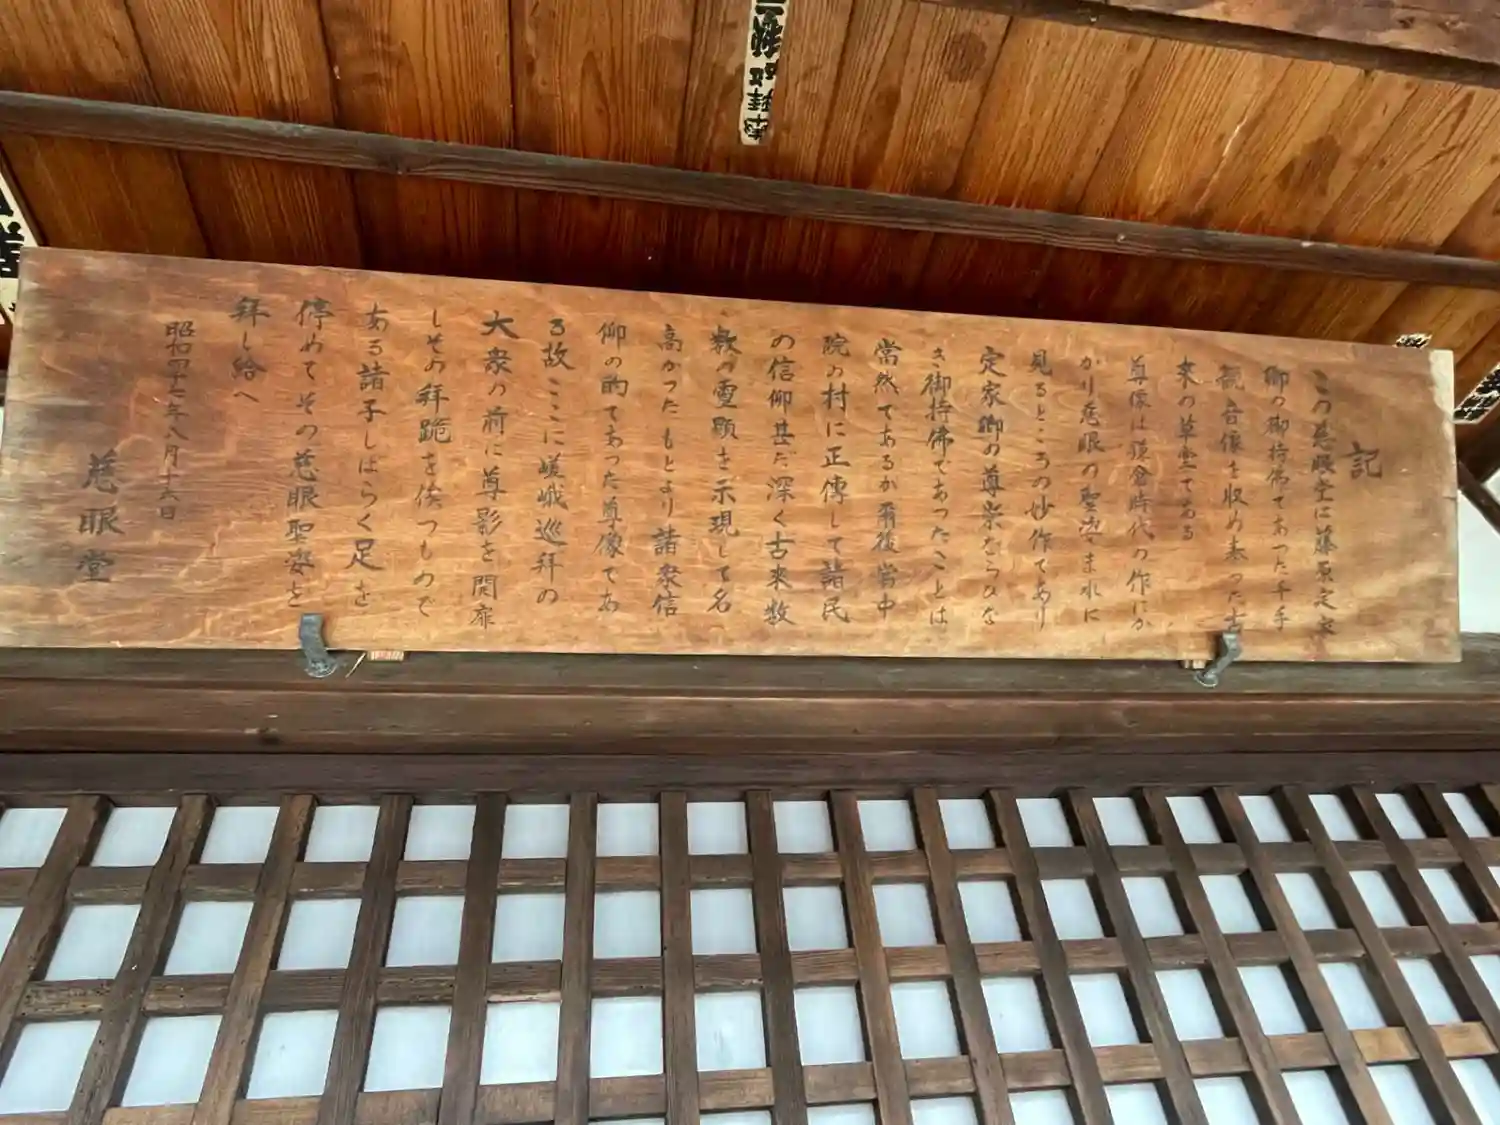 記
この慈眼堂は藤原定家
卿の御持佛であつた千手
観音像を収め奉つた古
来の草堂である
尊像は鎌倉時代の作にか
かり慈眼の聖姿まれに
見るところの妙作であり
定家卿の尊崇ならびな
き御持佛であつたことは
當然であるが爾後當中
院の村に正傳して諸民
の信仰甚だ深く古来数
数の霊顕を示現して名
高かつたもとより諸衆信
仰の的であつた尊像であ
る故ここに嵯峨巡拜の
大衆の前に尊影を開扉
しその拜跪を俟つもので
ある諸子しばらく足を
停めてその慈眼聖姿を
拜し給へ
昭和四十七年八月十六日
慈眼堂